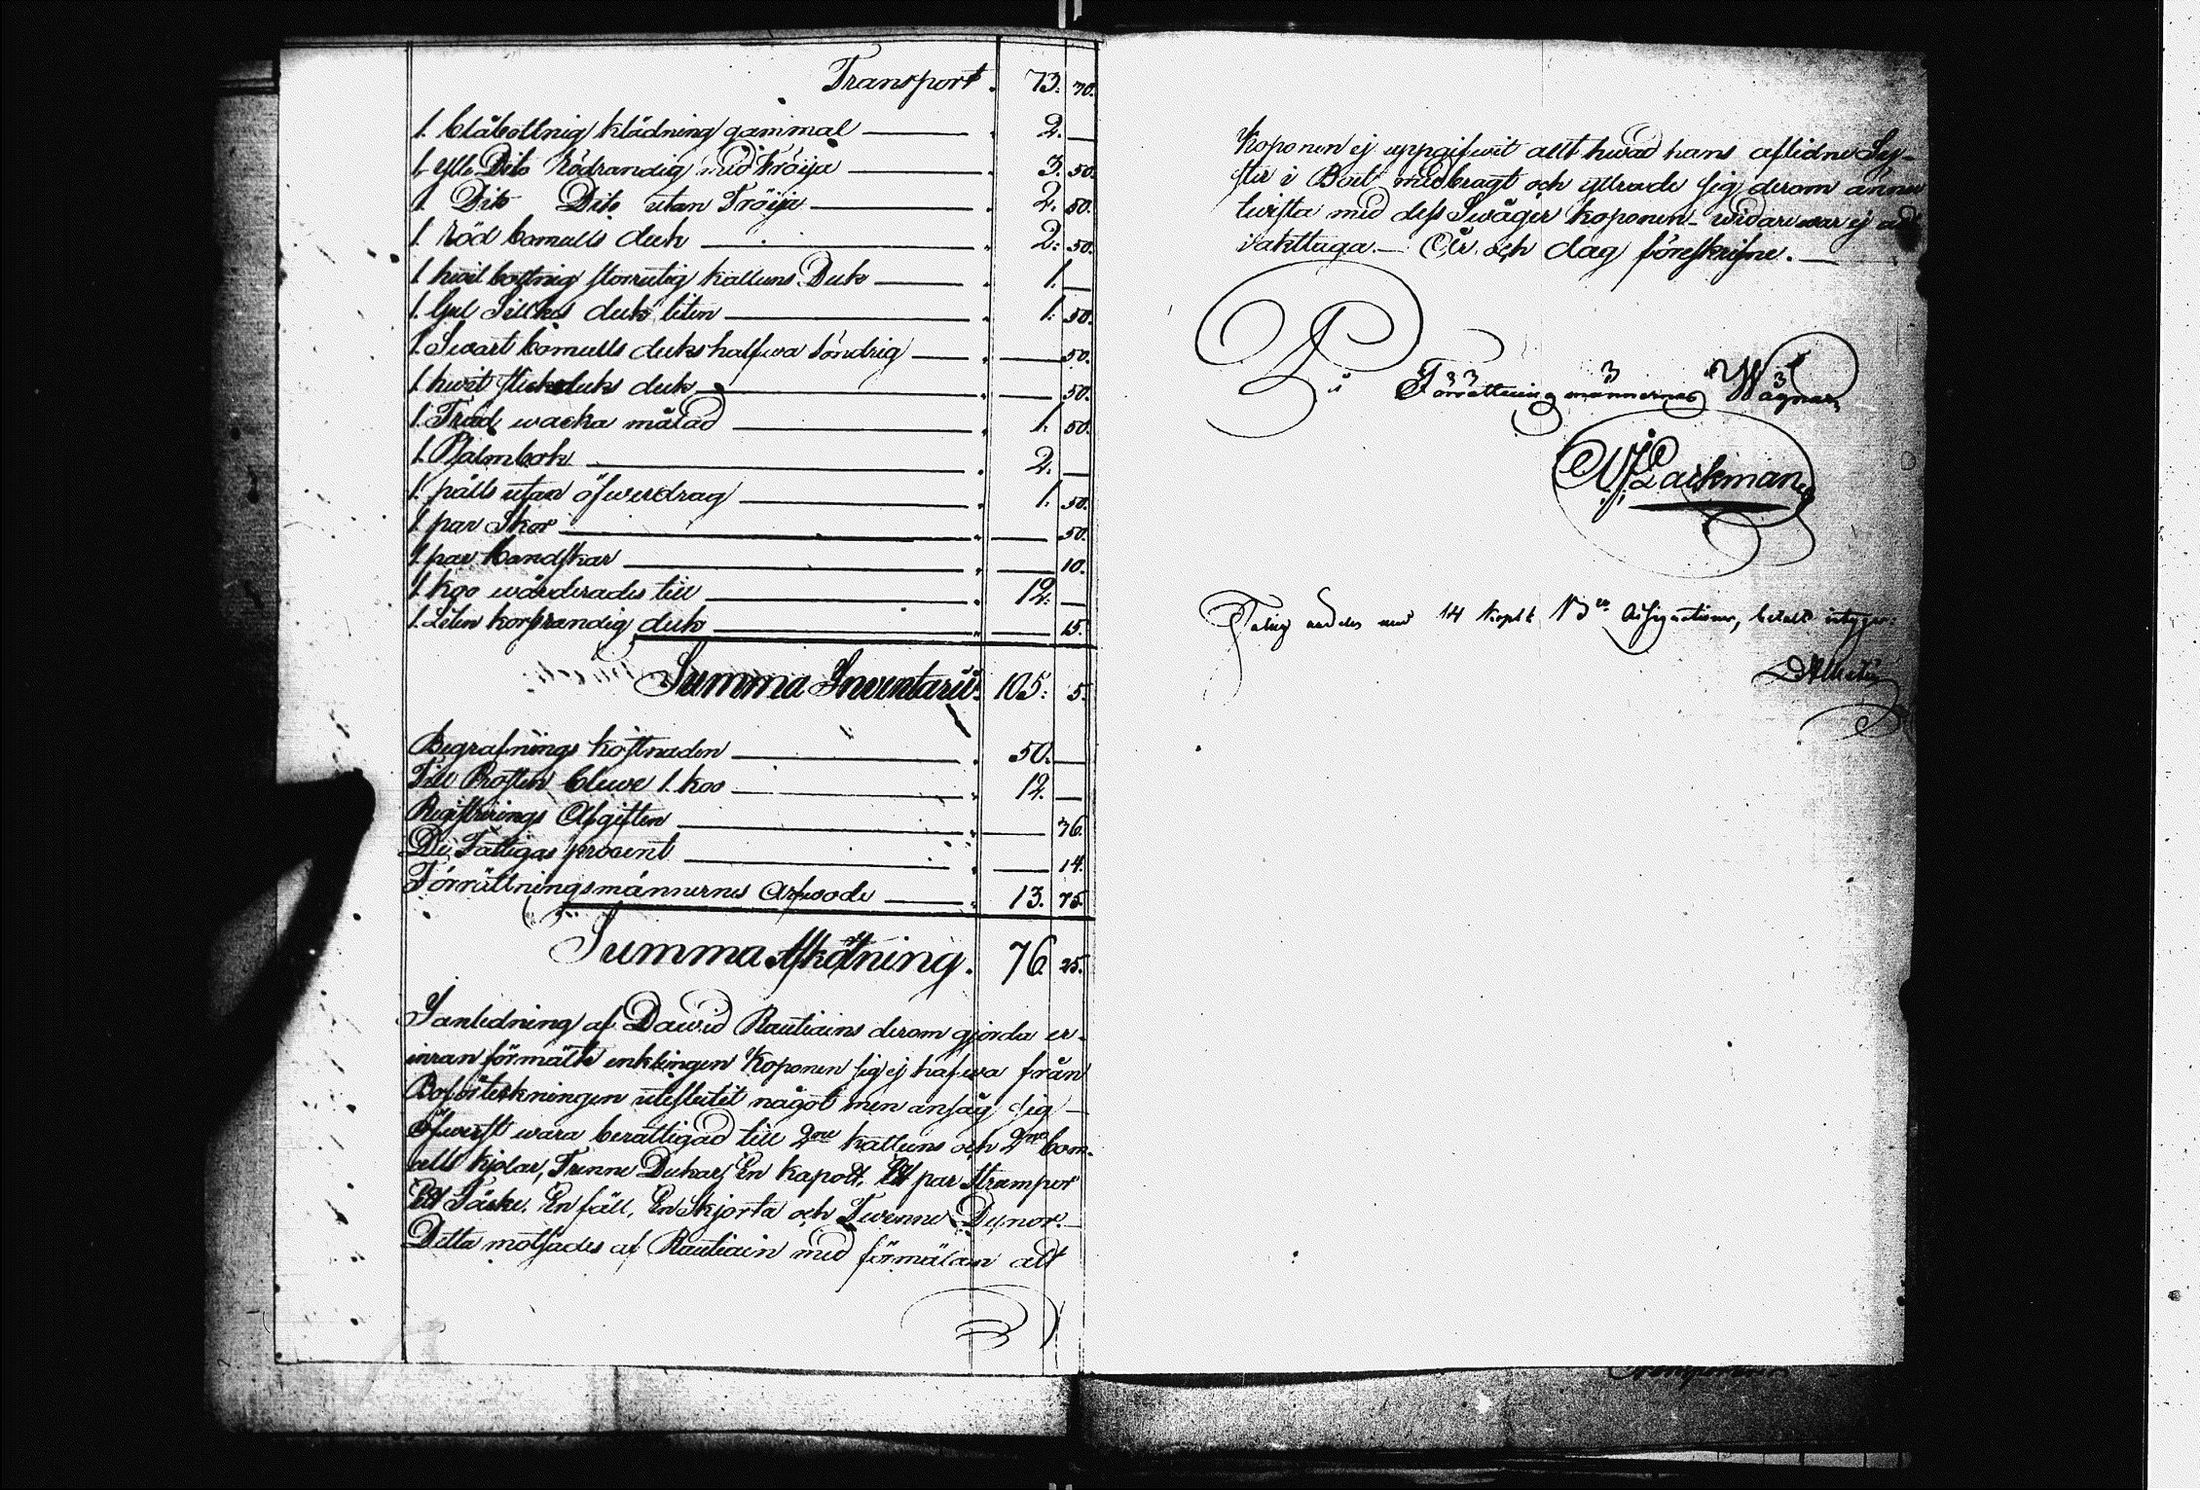 Transport. 73. 70.
1. blåbottnig klädning gammal 2. —
1. ylle Dito Rödrandig med Tröija 3. 50.
1. Dito Dito utan Tröija 2. 50.
1. Röd bomulls duk 2. 50.
1. hwit bottnig storrutig kattuns Duk 1. —
1. Gul Silkes duk liten 1. 50.
1. Swart bomulls duk halfwa söndrig — 50.
1. hwit duk — 50.
1. Träd wacka målad 1. 50.
1. Psalmbok 2. —
1. päls utan öfwerdrag 1. 50.
1. par Skor — 50.
1. par handskar — 10.
1. koo wärderades till 12. —
1. Liten korsrandig duk — 15.
Summa Inventarii. 105. 5.
Begrafnings kostnaden 50. —
Till Prosten blewe 1. koo 12. —
Registrerings Afgiften — 36.
De Fattigas procent — 14.
Förrättningsmännernes Arfwode 13. 75.
Summa Afkortning. 76. 25.
I anledning af Dawid Rautiains derom gjorda er-
inran förmälte enklingen Koponen sig ej hafwa från
Boförteckningen uteslutit något men ansåg sig
öfwerst wara berättigad till 2ne kattuns och 2ne bom-
ulls kjolar, Trenne Dukar, En kapott, Ett par strumpor
Ett Täcke, En fäll, En Skjorta och Twenne Dynor.
Detta motsades af Rautiain med förmälan att
Koponen ej uppgifwit allt hwad hans aflidne Sy-
ster i Boet medbragt och yttrade sig derom ännu
twista med dess Swåger Koponen. widare war ej att
iakttaga. År och dag föreskrifne.
På Förrättningsmännernes Wägnar,
Lackman
14 kop:r B:co Assignationer, betalt intygar: